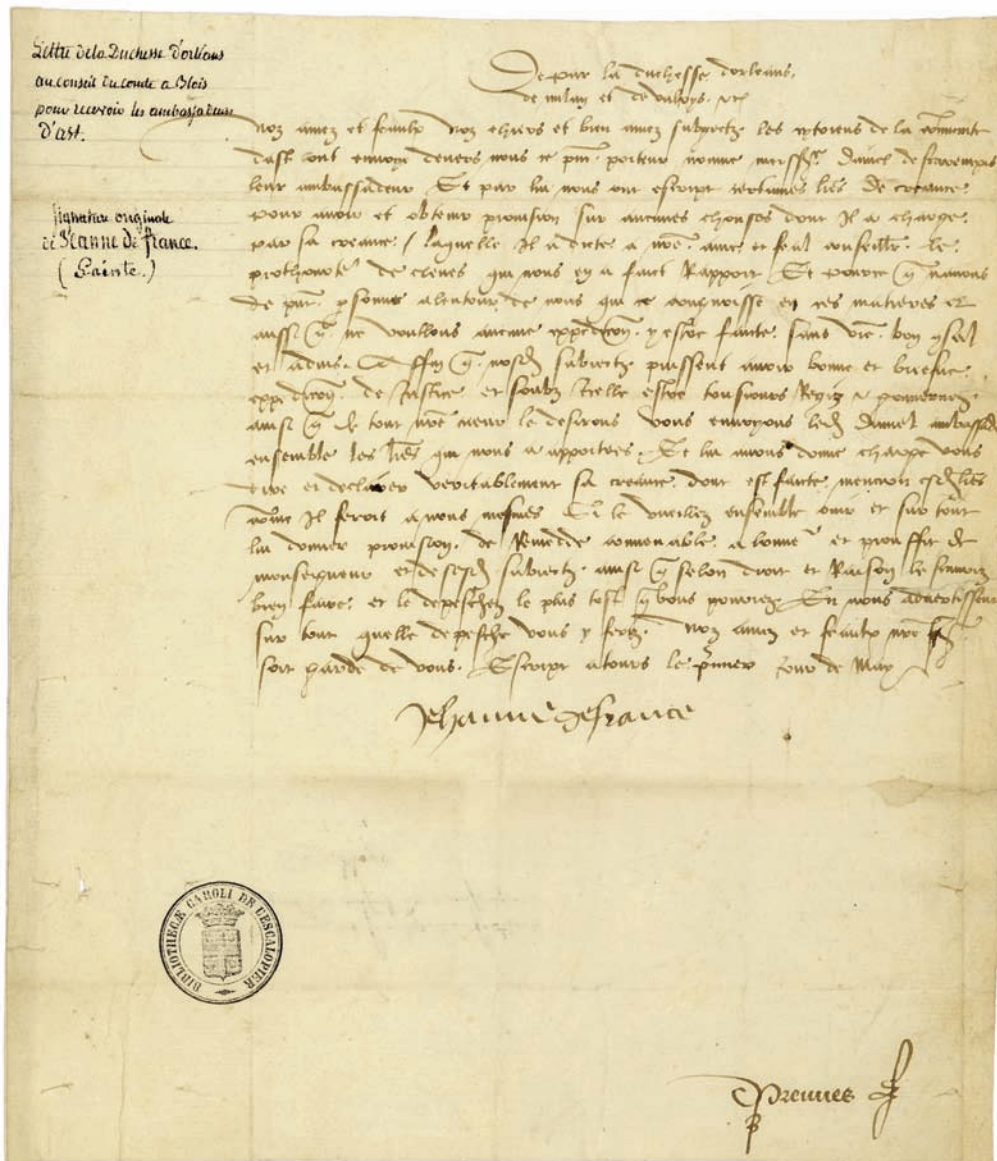 Lettre de la Duchesse d'orléans
au conseil du comte a Blois
pour recevoir les ambassadeurs
D'ast.
Signature originale
de Jeanne de france.
(Sainte.)
De par la duchesse dorleans,
de milan et de valoys. &c
Noz amez et feaulx noz chiers et bien amez subgectz les cytoiens de la
dast ont envoye devers nous ce pnt. porteur nomme daniel de
leur ambassadeur Et par lui nous ont escript certaines lres de creance.
pour avoir et obtenir provision sur aucunes chouses dont Il a charge.
par sa creance / laquelle Il a dicte a nre. ame et feal conseillr. le
prothonote de cleves qui nous en a faict Rapport Et pource q navons
de pnt. psonne alentour de nous qui se congnoisse en ces matieres et
aussi q. ne voullons aucune expedicon. y estre faicte sans vre. bon conseil
et advis. Affin q. nosd subiectz puissent avoir bonne et briefve
expedicon. de Justice et soubz Icelle estre tousiours Regiz & gouvernez
ainsi q de tout nre cueur le desirons vous envoyons led daniel ambassad
ensemble les lres qui nous a apportees. Et lui avons donne charge vous
dire et declairer veritablement sa creance. dont est faicte mencion esd lres
come Il feroit a nous mesmes Si le vueillez ensemble ouir et sur tout
lui donner provision. de Remedde convenable. a lonneur et prouffit de
monseigneur et de sesd subiectz. ainsi q selon droit et Raison le
bien faire. et le depeschez le plus tost q vous pourrez En nous advertissant
sur tout quelle depesche vous y ferez. Noz amez et feaulx nre sr
soit garde de vous. Escript a tours le pmier Jour de May
Jehanne de france
BIBLIOTHECÆ CAROLI DE L'ESCALOPIER